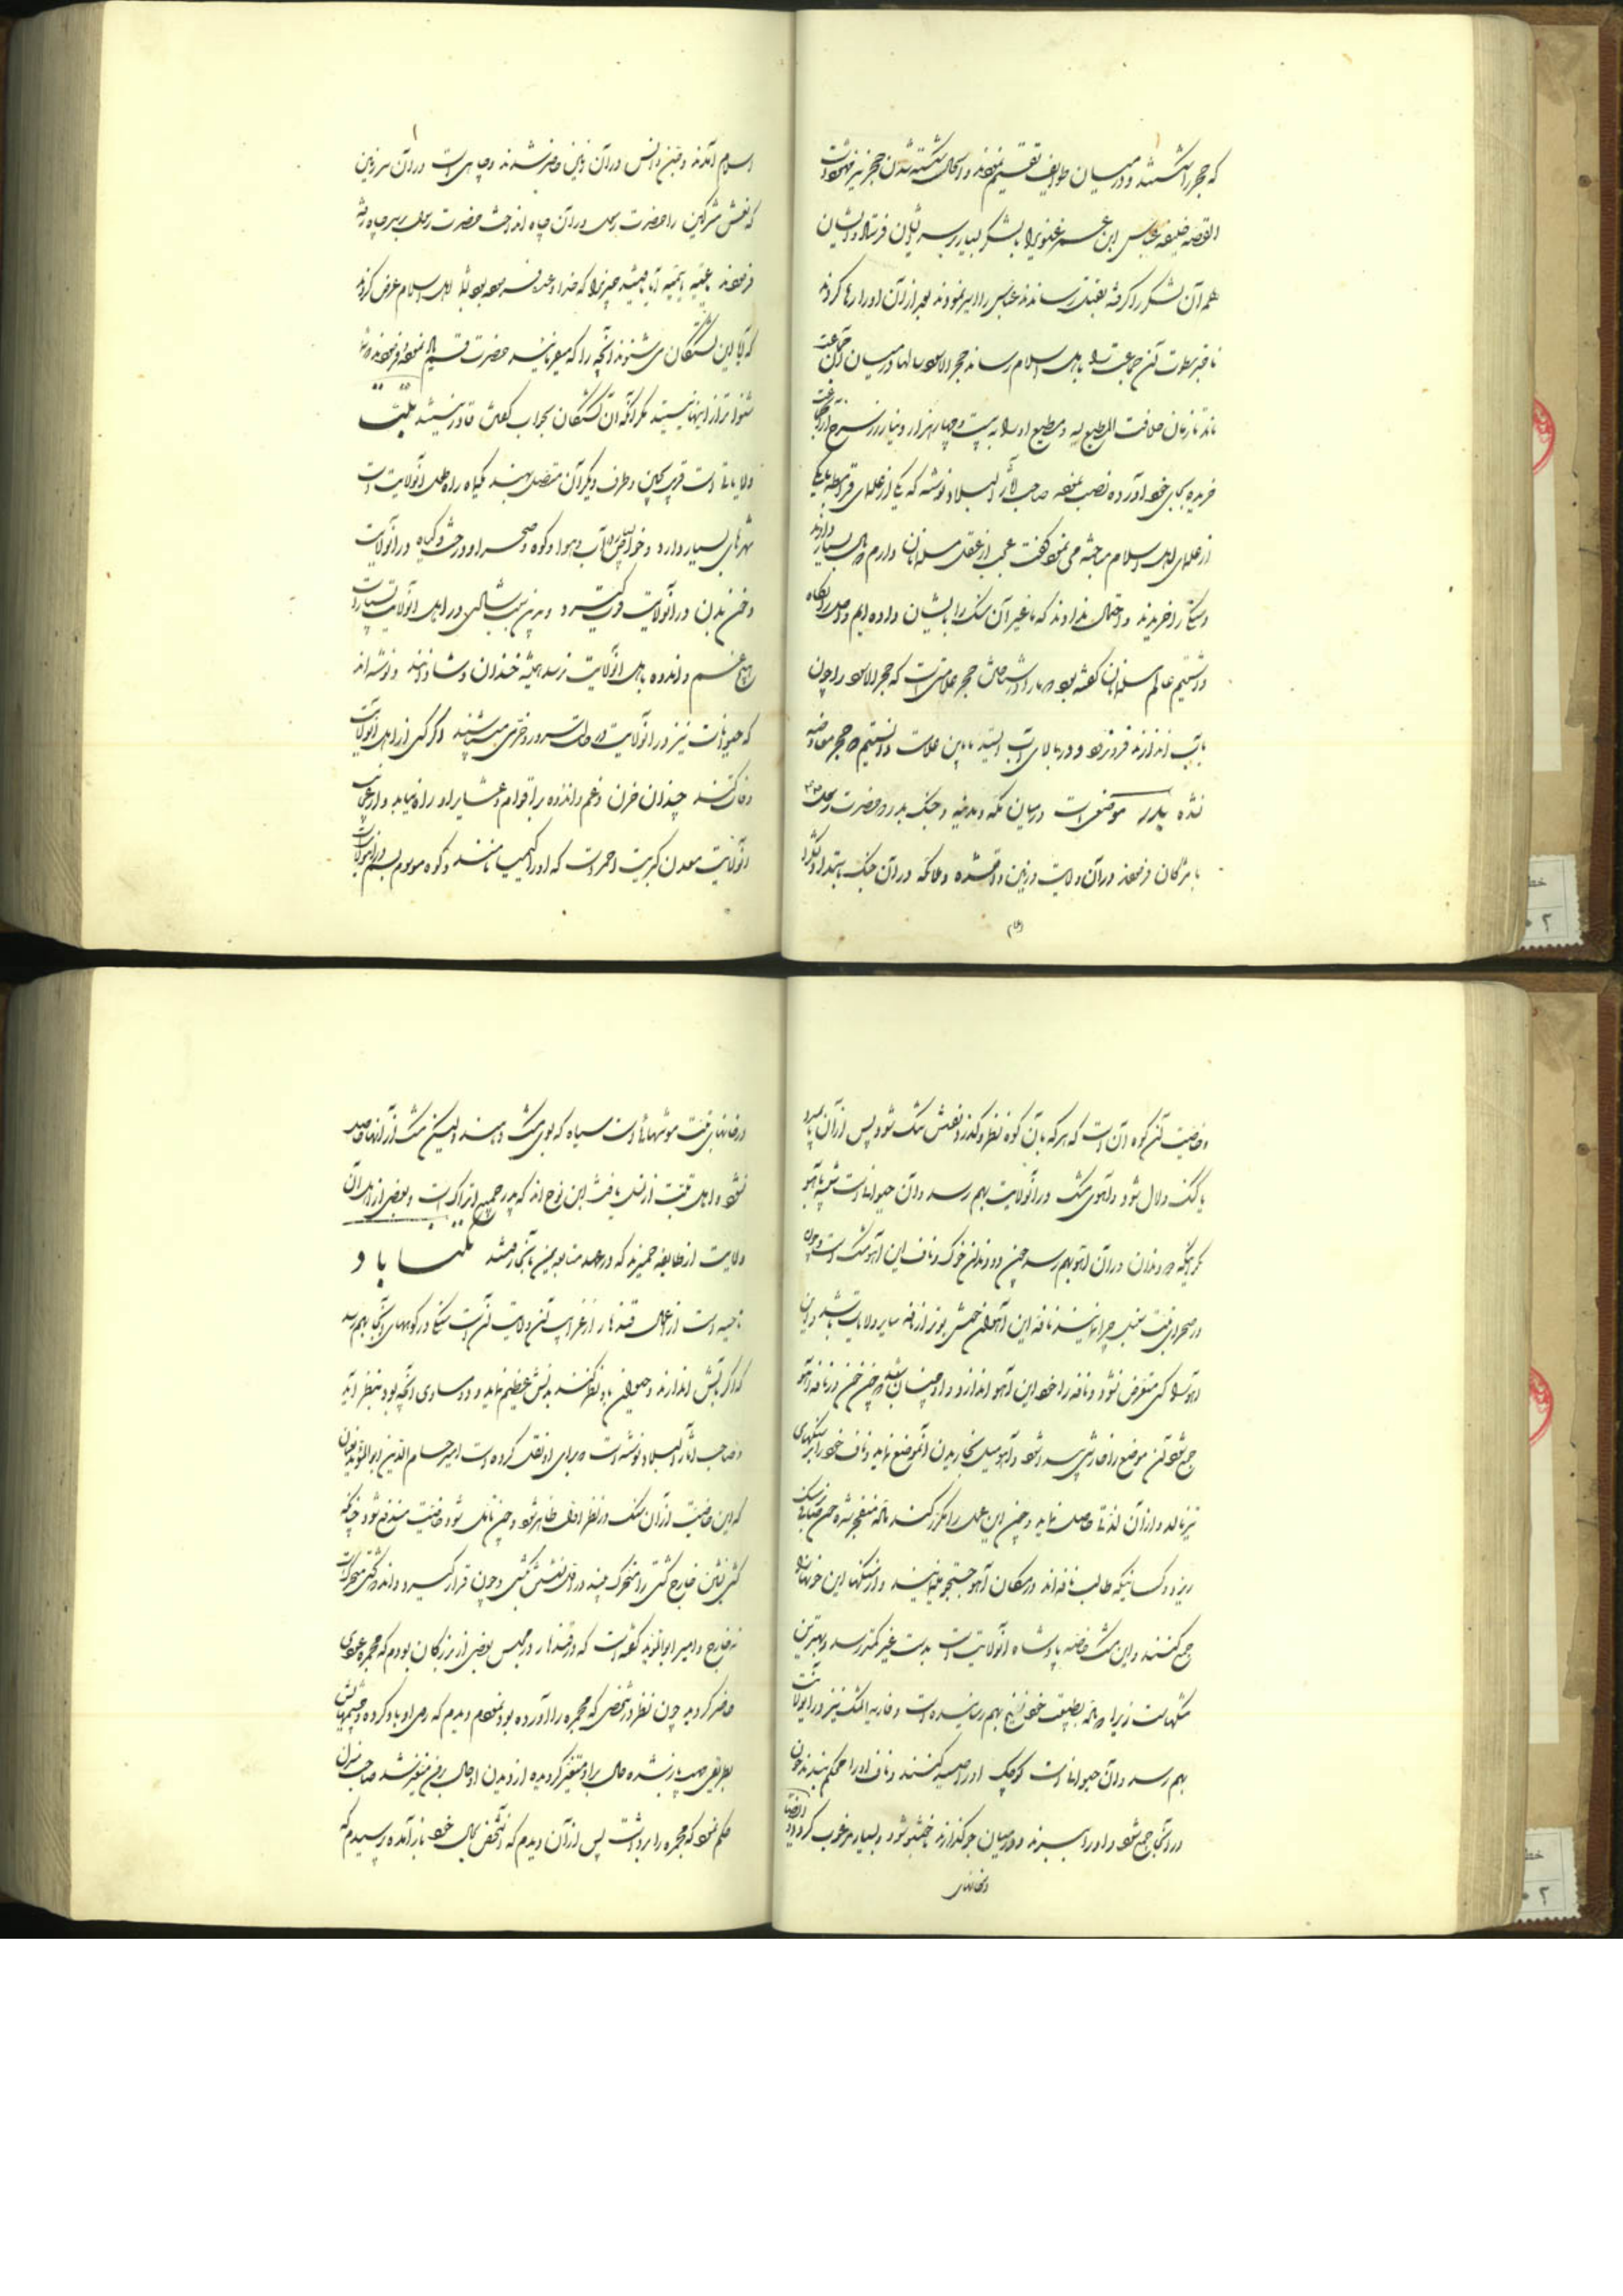 که حجر را شکستند و در میان طوایف تقسیم نمودند و الحال شکسته شدن حجر نیز
القصه خلیفه عباس ابن عمر غنوی را با لشکر بسیار بر سر ایشان فرستاد و ایشان
همه آن لشکر را گرفته بقتل رساندند عباس را اسیر نمودند بعد از آن او را رها کردند
تا خبر سطوت آن جماعت را باهل اسلام رساند حجر الاسود سالها در میان آن جماعت
ماند تا زمان خلافت المطیع لله و مطیع او را به بیست و چهار هزار دینار زر سرخ از آن جماعت
خریده بجای خود آورده نصب نموده صاحب آثار البلاد نوشته که یکی از علمای قرامطه با یکی
از علمای اهل اسلام مباحثه می نمود گفت عجب از عقل مسلمانان دارم که مال بسیار دادند
و سنگی را خریدند و احتمال ندادند که ما غیر آن سنگ را بایشان داده ایم و اصل را نگاه
داشتیم عالم مسلمانان گفته بود که ما را در شناختن حجر علامتی است که حجر الاسود را چون
بآب اندازند فرو نرود و در بالای آب ایستد باین علامت دانستیم که حجر معاوضه
نشده بدر موضعی است در میان مکه و مدینه و جنگ بدر را حضرت رسول
با مشرکان فرمودند در آن ولایت و زمین واقع شده و ملائکه در آن جنگ بامداد لشکر
اسلام آمدند و جن و انس در آن زمین حاضر شدند و چاهی است در آن سرزمین
که نعش مشرکین را حضرت رسول در آن چاه انداخت حضرت رسول بر سر چاه رفته
فرمودند یا عتبه یا شیبه آیا یافتید چیزی را که خدا وعده فرموده بود بشما اهل اسلام عرض کردند
که آیا این کشتگان می شنوند آنچه را که میفرمایید حضرت قسم یاد نموده فرمودند که شما
شنواتر از اینها نیستید مگر آنکه آن کشتگان بجواب گفتن قادر نیستند تبت
ولایاتی است قریب بچین و طرف دیگر آن متصل بهند
شهرهای بسیار دارد و خواص آب و هوا و کوه و صحرا و درخت و گیاه در آن ولایت
و خون بدن در آن ولایت قوت گیرد و باین سبب شادی در اهل آن ولایت بسیار است
هیچ غم و اندوه باهل آن ولایت نرسد همیشه خندان و شادند و نوشته اند
که حیوانات نیز در آن ولایت در حالت سرور و خرمی میباشند و اگر کسی از اهل آن ولایت
وفات کند چندان حزن و غم و اندوه بر اقوام و عشایر او راه نیابد و از عجایب
آن ولایت معدن کبریت احمر است که او را کیمیا دانند و کوه موسوم بسم در آن ولایت
و خاصیت آن کوه آن است که هر که بآن کوه نظر و گذر کند نفسش تنگ شود پس از آن یا بمیرد
یا گنگ و لال شود و آهوی مشک در آن ولایت بهم رسد و آن حیوانی است شبیه بآهو
مگر اینکه دو دندان در آن آهو بهم رسد چون دو دندان خوک و ناف این آهو مشک است و چون
در صحرای تبت سنبل چرا نمایند نافه این آهوان خوش بوتر از نافه سایر ولایات باشد و این
آهو را کسی متعرض نشود و نافه را خود این آهو اندازد و او چنان باشد که چون خون در نافه آهو
جمع شود آن موضع را خارشی پیدا شود و آهو میل بخاریدن آن موضع نماید و ناف خود را بر سنگهای
تیز مالد و از آن لذتی حاصل نماید و چون این عمل را مکرر کند نافه منفجر شده خون
ریزد و کسانیکه طالب نافه اند در مکان آهو جستجو نمایند و از سنگها این خونها را
جمع کنند و این مشک خاصه پادشاه آن ولایت است بدست غیر کمتر رسد و بهترین
مشکهاست زیرا که نافه بطبیعت خود نضج بهم رسانیده است و فارة المسک نیز در آن ولایت
بهم رسد و آن حیوانی است کوچک او را صید کنند و ناف او را محکم بندند خون
در آنجا جمع شود و او را ببرند و در میان جو گذارند خوشبو شود و بسیار مرغوب گردد و ایضاً
در خانهای
در خانهای تبت موشهائی است سیاه که بوی مشک دهند ولیکن مشک از آنها حاصل
نشود و اهل تبت از نسل یافث ابن نوح اند که پدر جمیع اتراک است و بعضی از اهل آن
ولایت از طایفه حمیرند که در عهد متابعین بآنجا رفتند تکیناباد
ناحیه است از اعمال قندهار از غرایب آن ولایت آن است سنگی در کوههای آنجا بهم رسد
که اگر بآتش اندازند و حیوان باو نظر کند بدنش عظیم نماید و دو مساوی آنچه بود بنظر آید
و صاحب آثار البلاد نوشته است که برای او نقل کرده است امیر حسام الدین ابو المؤید
که این خاصیت از آن سنگ در نظر اول ظاهر شود و چون تأمل شود خاصیت مندفع شود چنانکه
کشتی نشین خارج کشتی را متحرک بیند در اول نشستن کشتی و چون قرار گیرد داند که کشتی متحرک است
نه خارج و امیر ابو المؤید گفته است که در قندهار در مجلس بعضی از بزرگان بودم که مجمره عودی
حاضر کردند چون نظر در شخصی که مجمره را آورده بود نمودم دیدم که روی او باد کرده و چشمهایش
بطریقی پاره شده حال بر او متغیر گردیده از دیدن او حال بر من متغیر شد صاحب منزل
حکم نمود که مجمره را برداشت پس از آن دیدم که آن شخص بحال خود باز آمده پرسیدم که